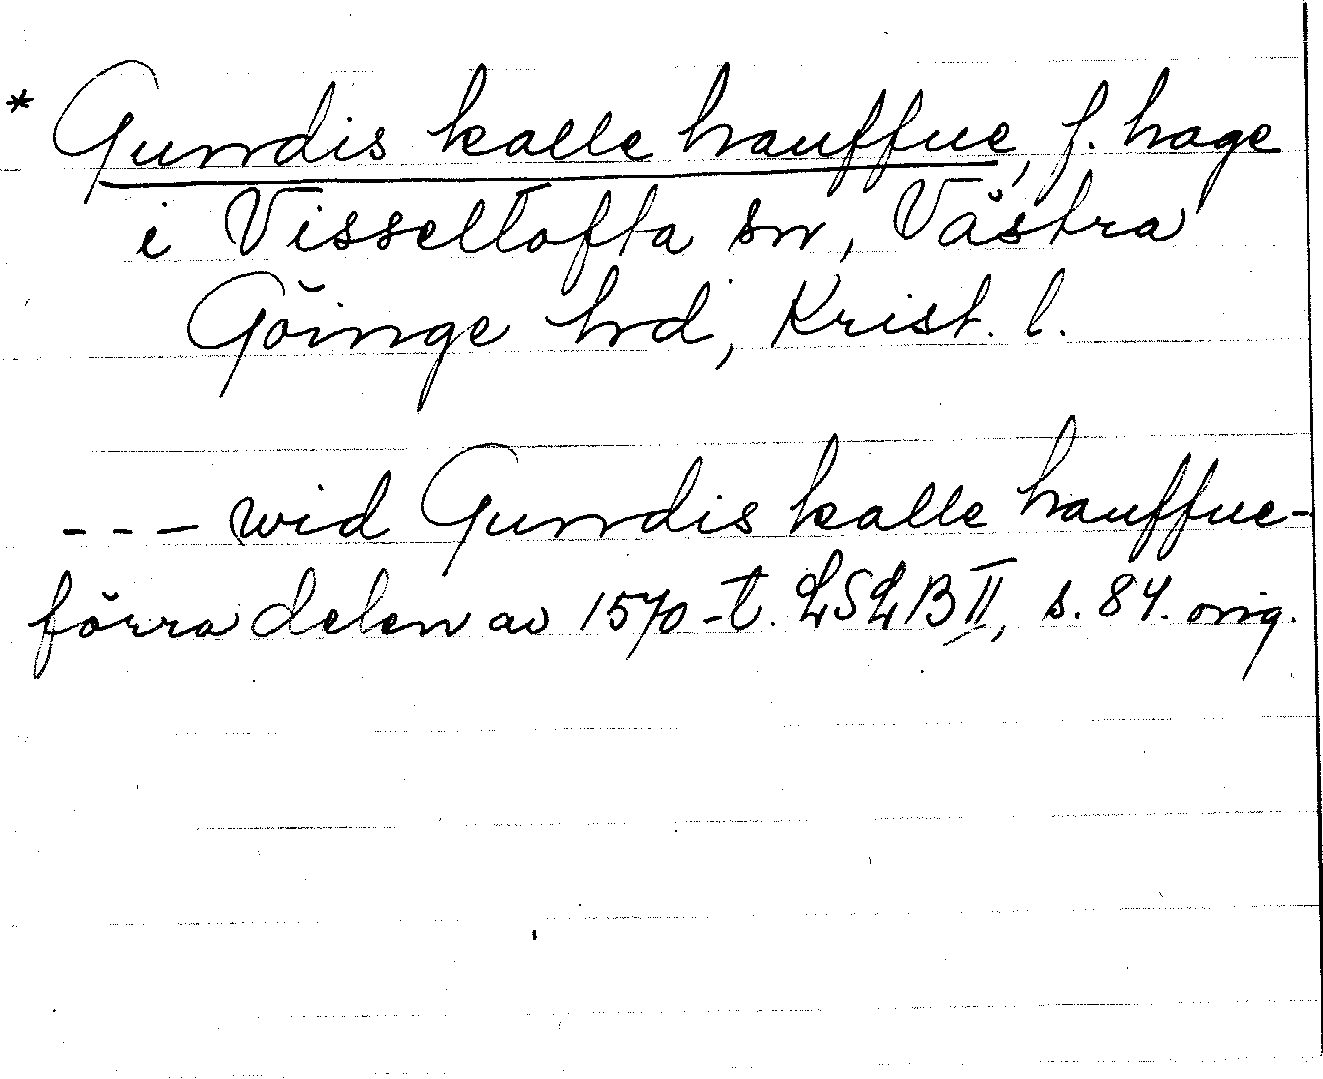 * Gunndis kalle hauffue, f. hage
i Visseltofta sn, Västra
Göinge hd, Krist. l.
--- wid Gunndis kalle hauffue-
förra delen av 1570-t. LSLB II, s. 84. orig.